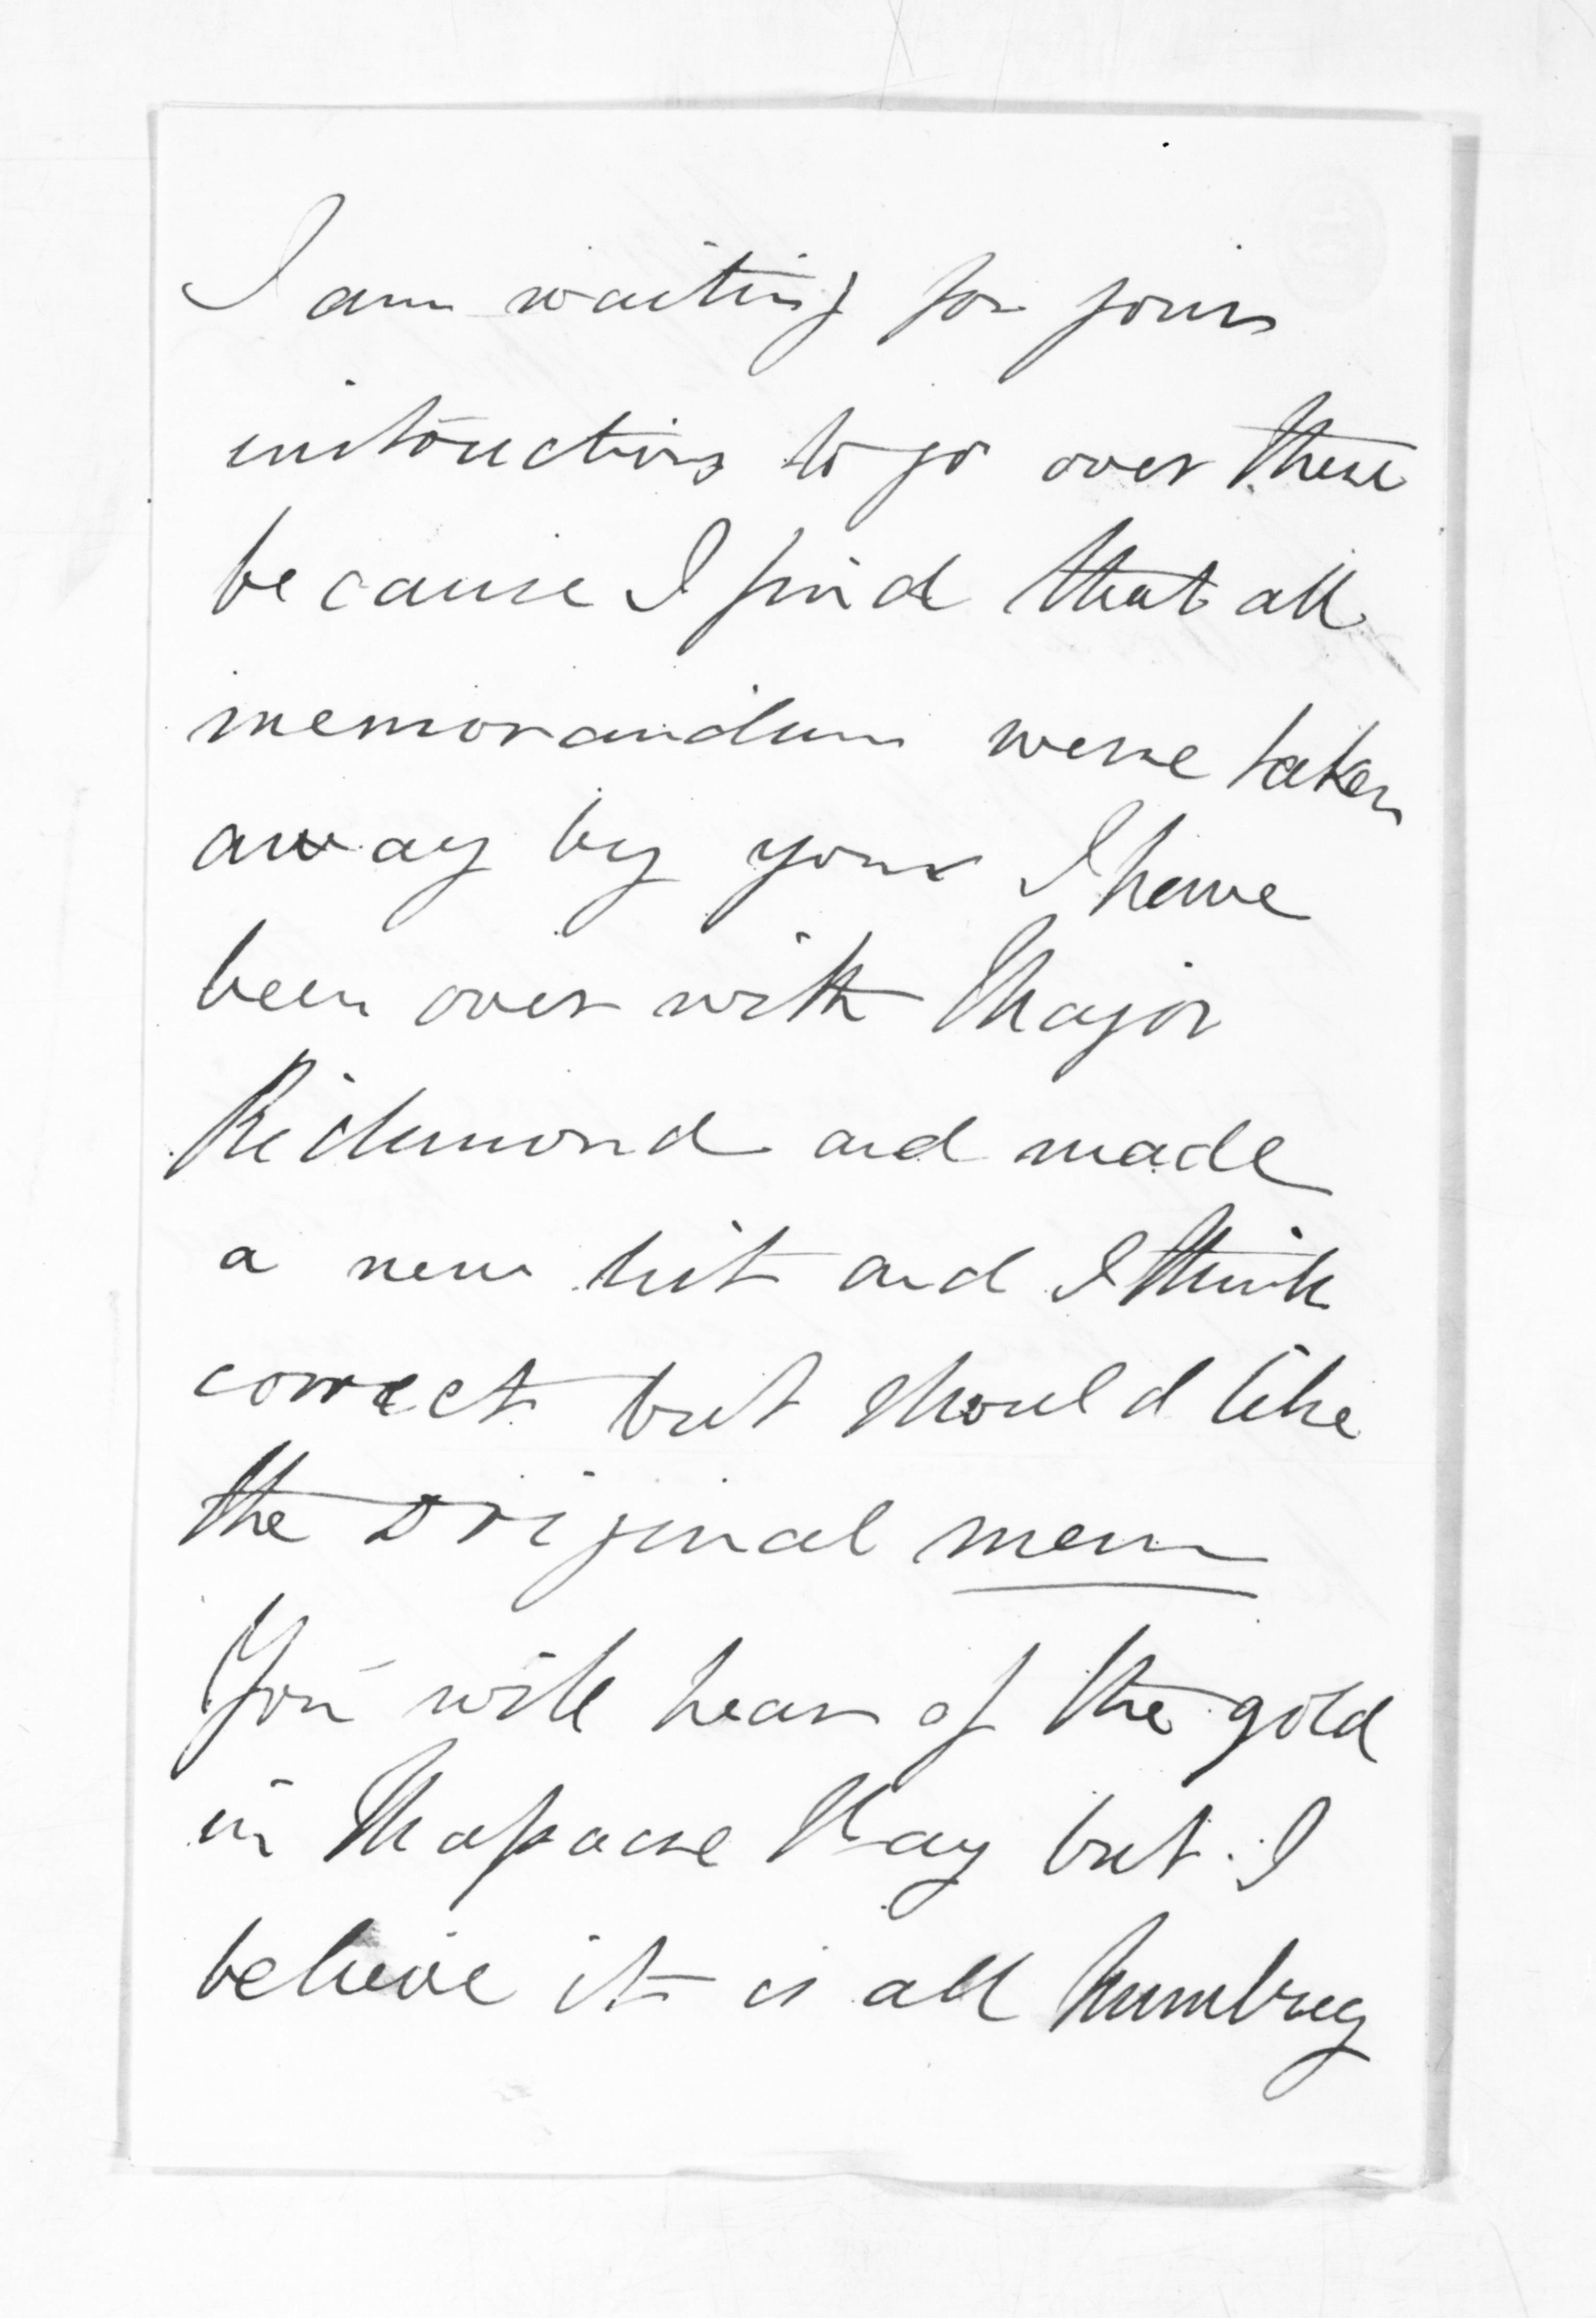 I am waiting for your
instructions to go over there
because I find that all
memorandum were taken
away by your I have
been over with Major
Richmond and made
a new list and I think
correct but should like
the original mem
You will hear of the gold
in Massacre Bay but I
believe it is all humbug